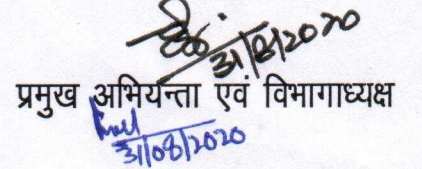 31/8/2020
प्रमुख अभियन्ता एवं विभागाध्यक्ष
31/08/2020